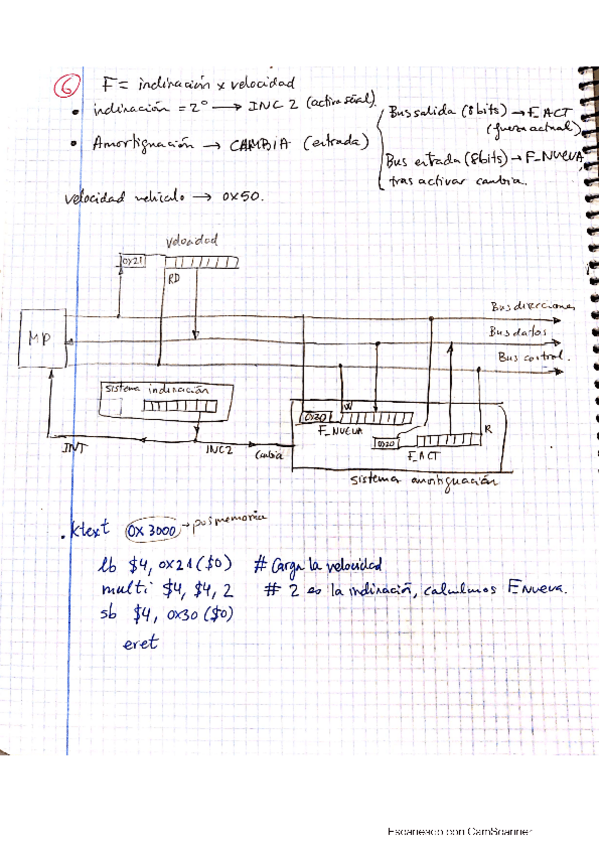 6 F = inclinación x velocidad
• inclinación = 2° → INC 2 (activa señal).
• Amortiguación → CAMBIA (entrada)
Bus salida (8 bits) → F_ACT
(fuerza actual)
Bus entrada (8 bits) → F_NUEVA,
tras activar cambia.
velocidad vehículo → 0x50.
Velocidad
0x21
RD
MP
Bus direcciones
Bus datos
Bus control.
sistema inclinación
INT
INC2
Cambia
0x20
W
F_NUEVA
0x20
R
F_ACT
sistema amortiguación
.ktext 0x3000 → pos memoria
lb $4, 0x21($0) # Carga la velocidad
multi $4, $4, 2 # 2 es la inclinación, calculamos Fnueva.
sb $4, 0x30($0)
eret
Escaneado con CamScanner